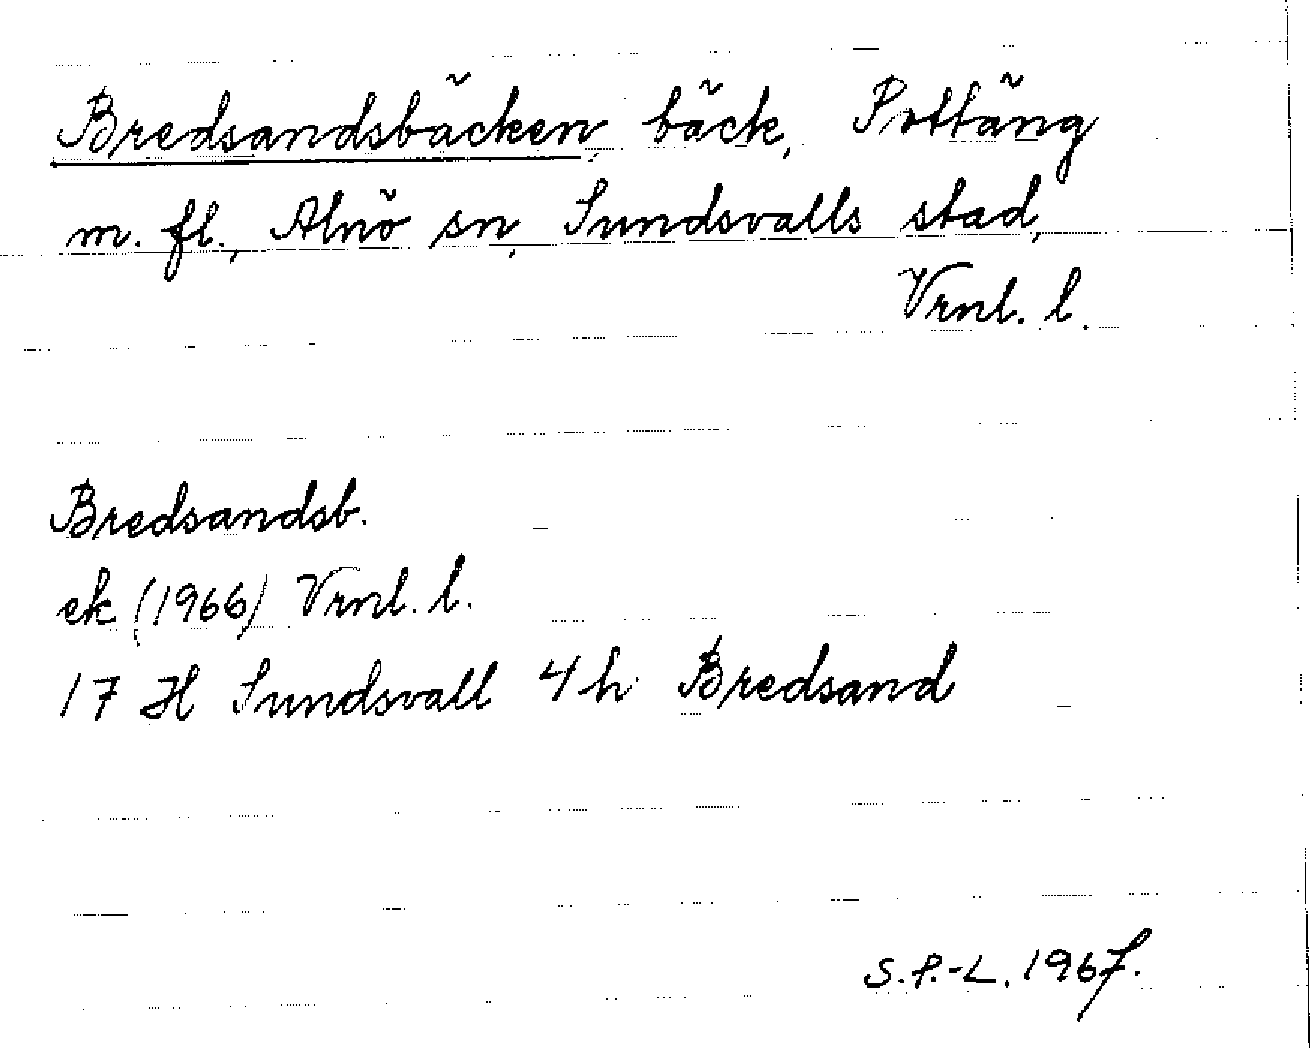 Bredsandsbäcken, bäck, Pottäng
m. fl., Alnö sn, Sundsvalls stad,
Vrnl. l.
Bredsandsb.
ek (1966) Vrnl. l.
17 H Sundsvall 4h Bredsand
S.P.-L. 1967.